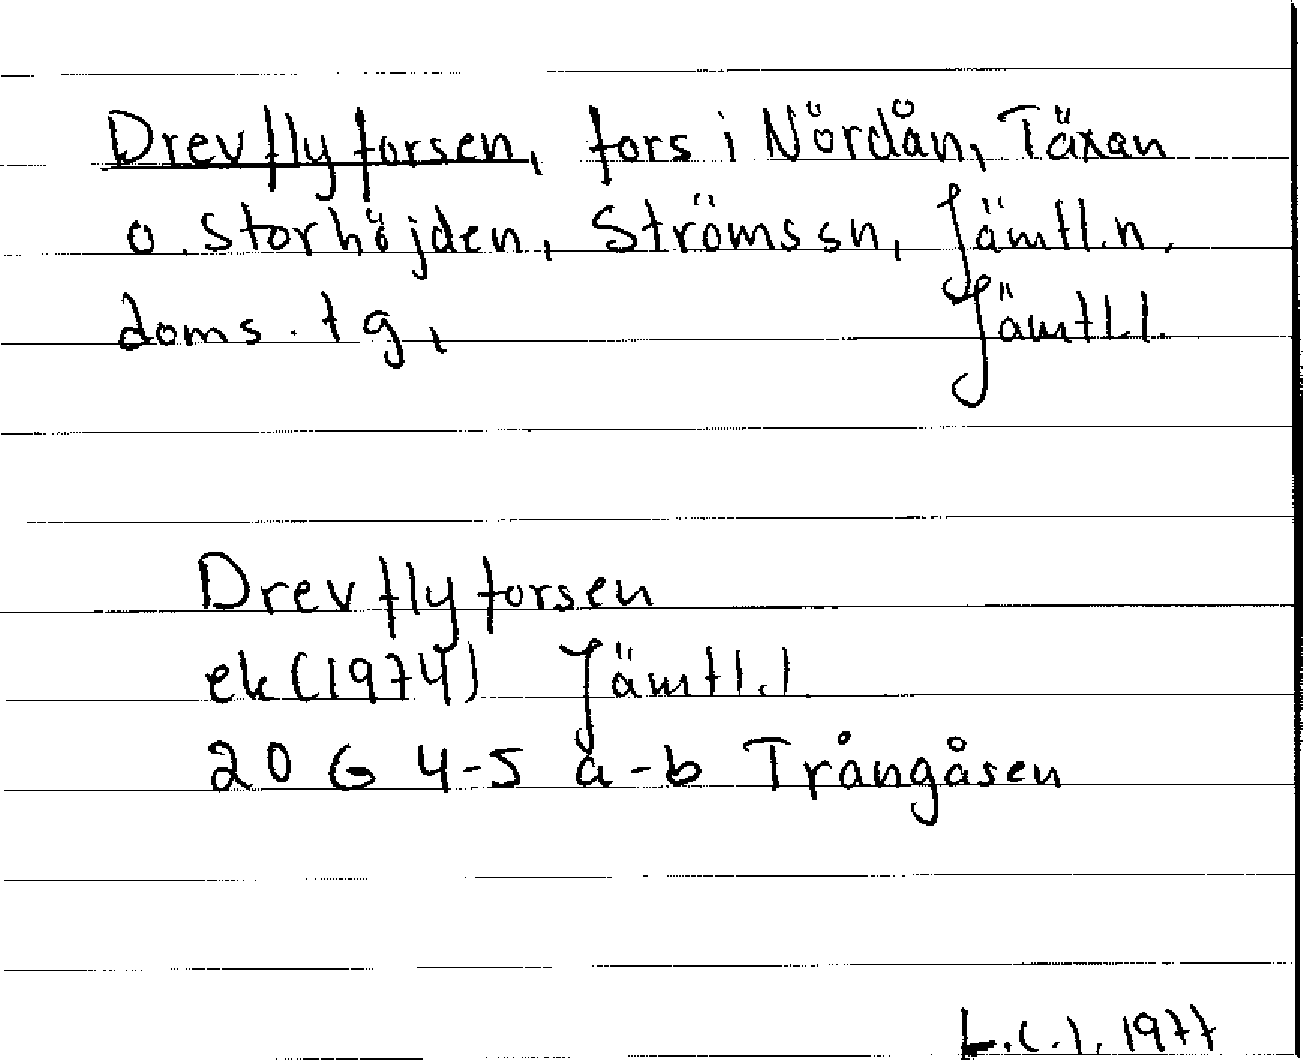 Drevflyforsen, fors i Nördån, Täxan
o. Storhöjden, Ströms sn, Jämtl. n.
doms. tg, Jämtl. l.
Drevflyforsen
ek (1974) Jämtl. l
20 G 4-5 a-b Trångåsen
1977